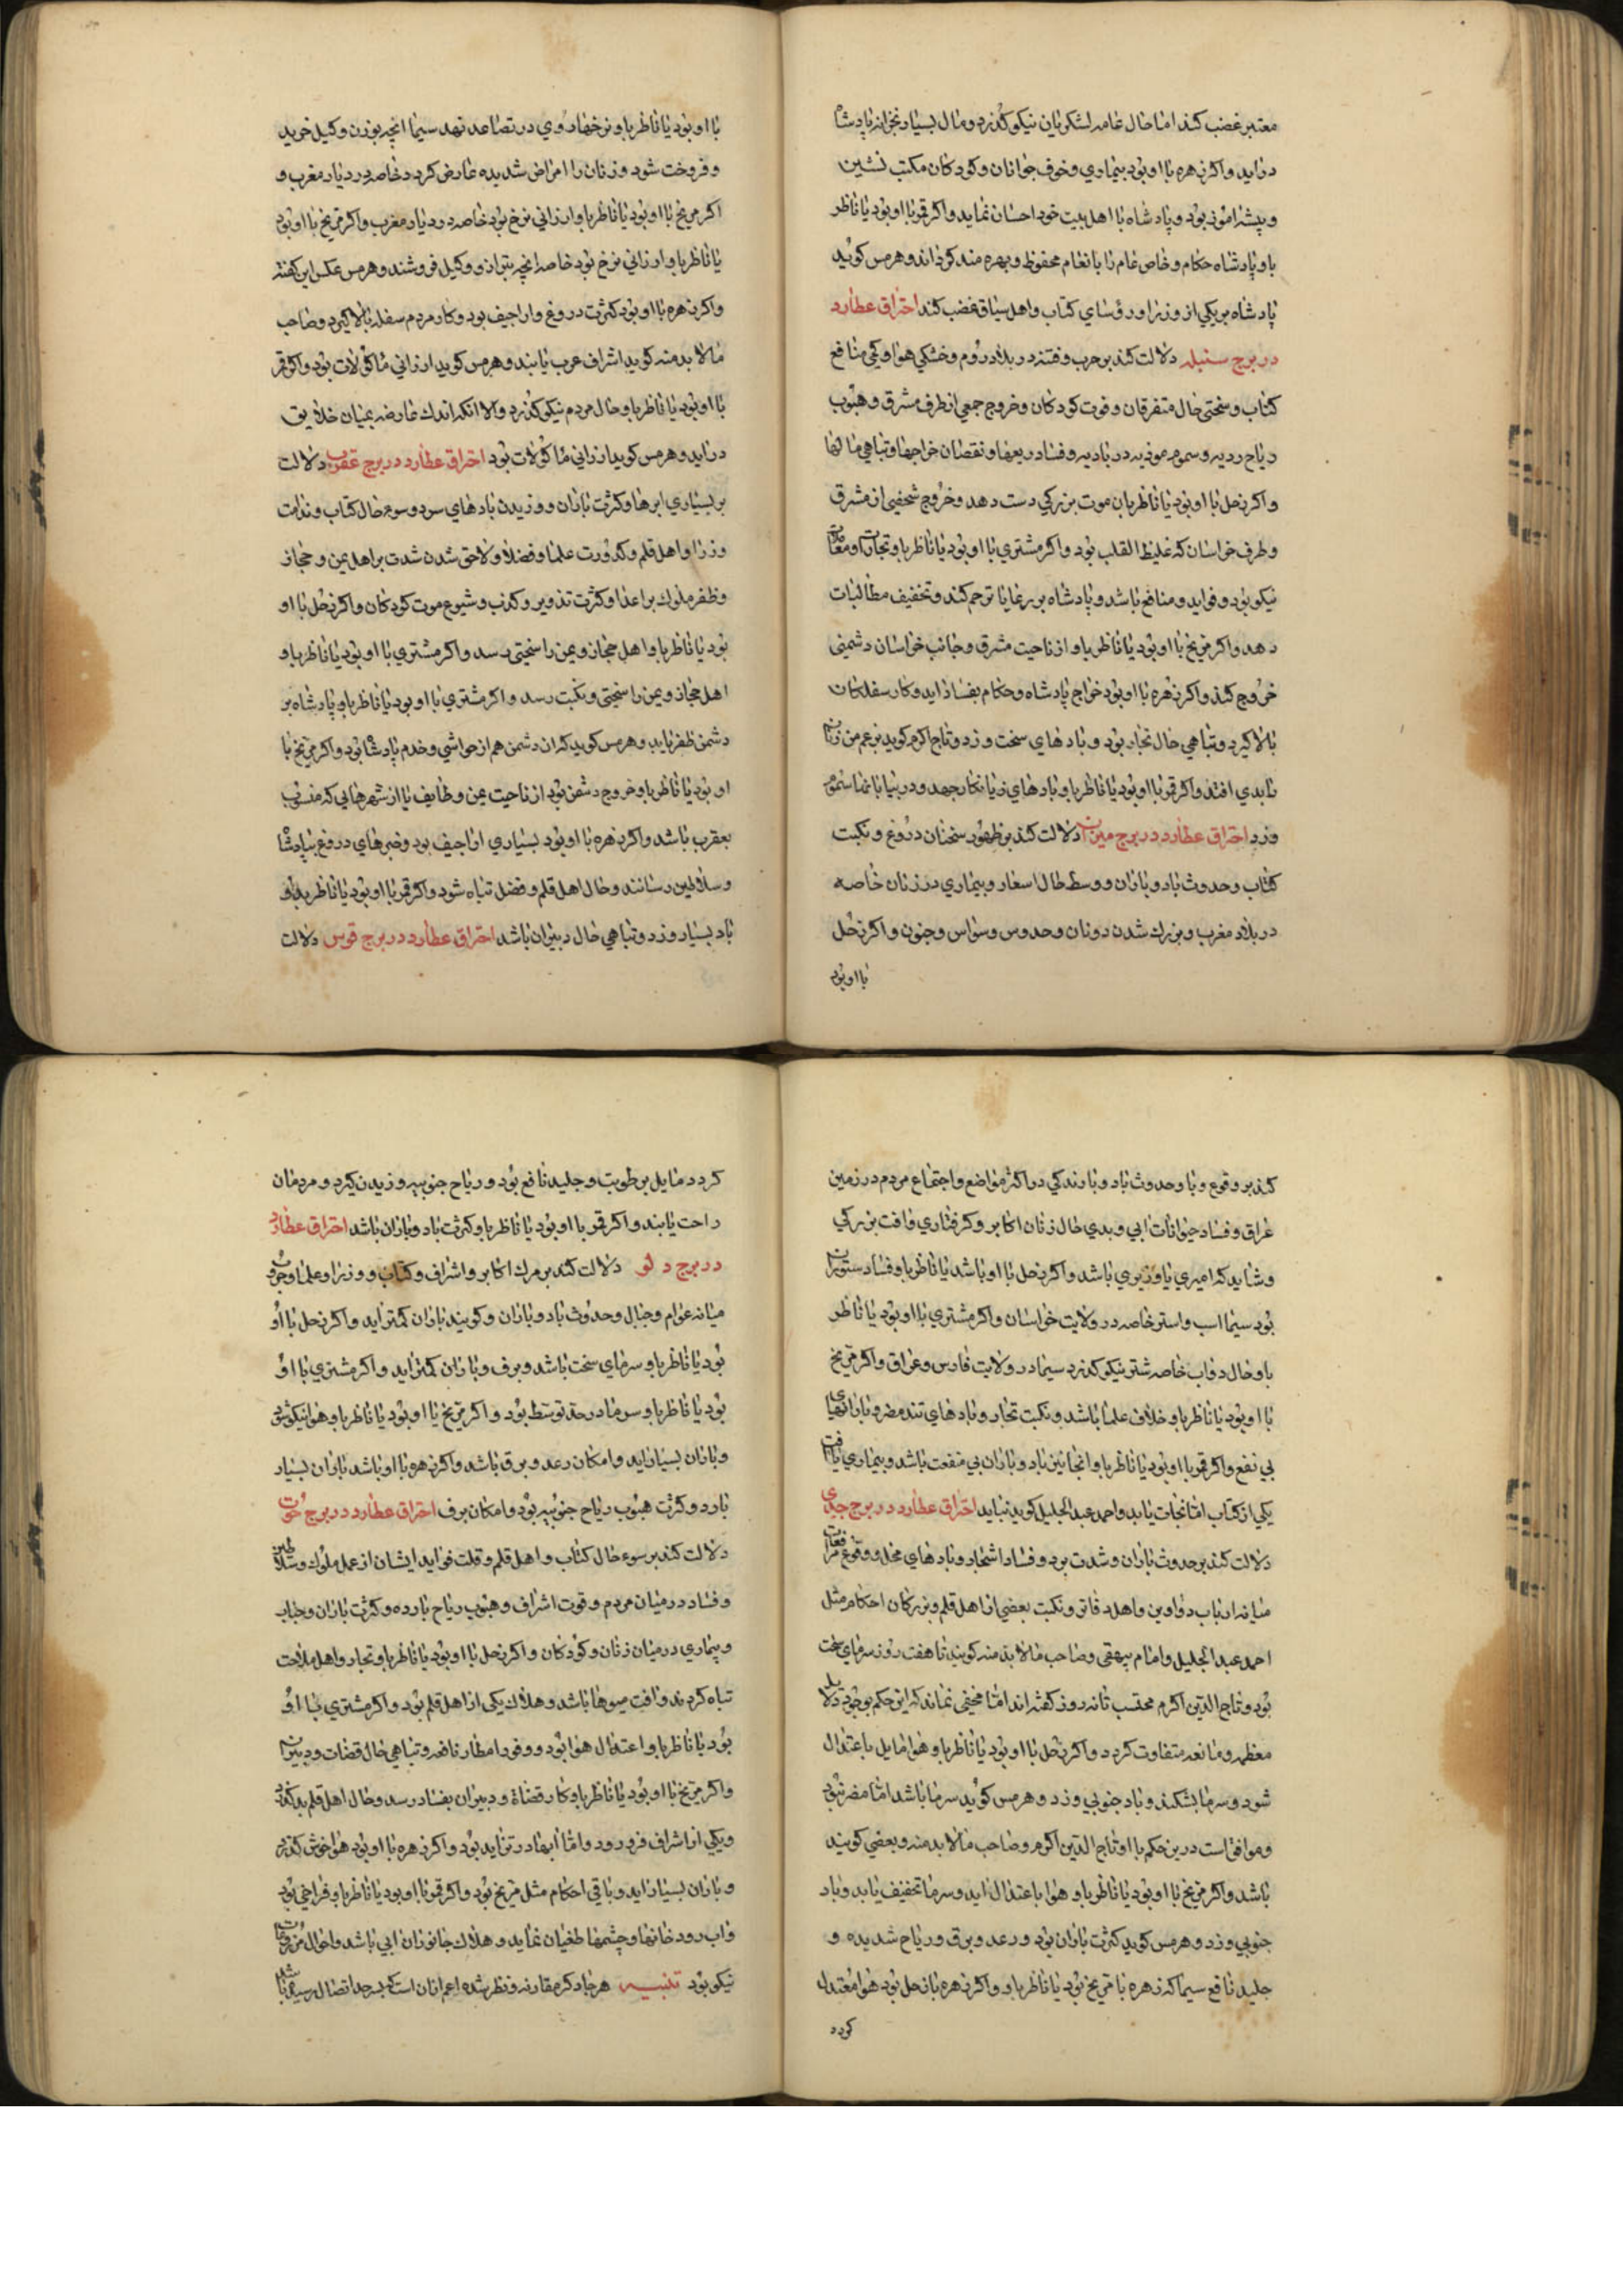 معتبر غضب کند اما حال عامه لشکریان نیکو گذرد و مال بسیار بخزانه پادشاه
دراید و اکر زهره با او بود بیماری و خوف جوانان و کودکان مکتب نشین
و پیشه اموز بود و پادشاه با اهل بیت خود احسان نماید و اکر قمر با او بود یا ناظر
باو پادشاه حکام و خاص عام را بانعام محفوظ و بهره مند کرداند و هرمس کوید
پادشاه بر یکی از وزرا و رؤسای کتاب و اهل سیاق غضب کند احتراق عطارد
در برج سنبله دلالت کند بر حرب و فتنه در بلاد روم و خشکی هوا و کمی منافع
کتاب و سختی حال متفرقان و فوت کودکان و خروج جمعی از طرف مشرق و هبوب
ریاح ردیه و سموم موذیه در بادیه و فساد ریعها و نقصان خراجها و تباهی مالها
و اکر زحل با او بود یا ناظر بان موت بزرکی دست دهد و خروج شخصی از مشرق
و طرف خراسان که غلیظ القلب بود و اکر مشتری با او بود یا ناظر باو تجارات و معاملات
نیکو بود و فواید و منافع باشد و پادشاه بر رعایا ترحم کند و تخفیف مطالبات
دهد و اکر مریخ با او بود یا ناظر باو از ناحیت مشرق و جانب خراسان دشمنی
خروج کند و اکر زهره با او بود خواج پادشاه و حکام بفساد اید و کار سفلکان
بالا کیرد و تباهی حال تجار بود و بادهای سخت وزد و تاج اکرم کوید بزعم من زنان
نابدی افتد و اکر قمر با او بود یا ناظر باو بادهای زیانکار جهد و در بیابانها سموم
وزد احتراق عطارد در برج میزان دلالت کند بر ظهور سخنان دروغ و نکبت
کتاب و حدوث باد و باران و وسط حال اسعار و بیماری در زنان خاصه
در بلاد مغرب و بزرك شدن دونان و حدوس وسواس و جنون و اکر زحل
با او بود
با او بود یا ناظر باو نرخها روی در تصاعد نهد سیما انچه بوزن و کیل خرید
و فروخت شود و زنان را امراض شدیده عارض کردد خاصه در دیار مغرب و
اکر مریخ با او بود یا ناظر باو ارزانی نرخ بود خاصه در دیار مغرب و اکر مریخ با او بود
یا ناظر باو ارزانی نرخ بود خاصه انچه بترازو و کیل فروشند و هرمس عکس این کفته
و اکر زهره با او بود کثرت دروغ و اراجیف بود و کار مردم سفله بالا کیرد و صاحب
مالا بد منه کوید اشراف عرب یابند و هرمس کوید ارزانی ماکولات بود و اکر قمر
با او بود یا ناظر باو حال مردم نیکو کذرد والا انکه اندك عارضه بمیان خلایق
دراید و هرمس کوید ارزانی ماکولات بود احتراق عطارد در برج عقرب دلالت
بر بسیاری ابرها و کثرت باران و وزیدن بادهای سرد و سوء حال کتاب و ندامت
وزرا و اهل قلم و کدورت علما و فضلا و لاحق شدن شدت بر اهل یمن و حجاز
و ظفر ملوك بر اعدا و کثرت تذویر و کذب و شیوع موت کودکان و اکر زحل با او
بود یا ناظر باو اهل حجاز و یمن را سختی رسد و اکر مشتری با او بود یا ناظر باو
اهل حجاز و یمن را سختی و نکبت رسد و اکر مشتری با او بود یا ناظر باو پادشاه بر
دشمن ظفر یابد و هرمس کوید که ان دشمن هم از حواشی و خدم پادشا بود و اکر مریخ با
او بود یا ناظر باو خروج دشمن بود از ناحیت یمن و طایف یا از شهرهایی که منسوب
بعقرب باشد و اکر زهره با او بود بسیاری اراجیف بود و خبرهای دروغ بپادشا
و سلاطین رسانند و حال اهل قلم و فضل تباه شود و اکر قمر با او بود یا ناظر بدو
باد بسیار وزد و تباهی حال دبیران باشد احتراق عطارد در برج قوس دلالت
کند بر وقوع وبا و حدوث باد و بارندکی در اکثر مواضع و اجتماع مردم در زمین
عراق و فساد حیوانات ابی و بدی حال زنان اکابر و کرفتاری و افت بزرکی
و شاید که امیری یا وزیری باشد و اکر زحل با او باشد یا ناظر باو فساد ستوران
بود سیما اسب و استر خاصه در ولایت خراسان و اکر مشتری با او بود یا ناظر
باو حال دواب خاصه شتر نیکو کذرد سیما در ولایت فارس و عراق و اکر مریخ
با او بود یا ناظر باو خلاف علما باشد و نکبت تجار و بادهای تند مضر و بارانهای
بی نفع و اکر قمر با او بود یا ناظر باو انجانین باد و باران بی منفعت باشد و بیماری یا افت
یکی از کتاب اما نجات یابد و احمد عبد الجلیل کوید نیاید احتراق عطارد در برج جدی
دلالت کند بر حدوث باران و شدت برد و فساد اشجار و بادهای مخل و وقوع مرافعات
میانه ارباب دواوین و اهل دفاتر و نکبت بعضی از اهل قلم و بزرکان احکام مثل
احمد عبد الجلیل و امام بیهقی و صاحب مالا بد منه کویند تا هفت روز سرمای سخت
بود و تاج الدین اکرم محتسب تا نه روز کفته اند اما مخفی نماند که این حکم بوجود دلایل
معظمه و مانعه متفاوت کردد و اکر زحل با او بود یا ناظر باو هوا مایل باعتدال
شود و سرما بشکند و باد جنوبی وزد و هرمس کوید سرما باشد اما مضر نبود
و موافق است درین حکم با او تاج الدین اکرم و صاحب مالا بد منه و بعضی کویند
باشد و اکر مریخ با او بود یا ناظر باو هوا باعتدال اید و سرما تخفیف یابد و باد
جنوبی وزد و هرمس کوید کثرت باران بود و رعد و برق و ریاح شدیده و
جلید نافع سیما که زهره با مریخ بود یا ناظر باو و اکر زهره با زحل بود هوا معتدل
کردد
کردد مایل برطوبت و جلید نافع بود و ریاح جنوبیه وزیدن کیرد و مردمان
راحت یابند و اکر قمر با او بود یا ناظر باو کثرت باد و باران باشد احتراق عطارد
در برج دلو دلالت کند بر مرك اکابر و اشراف و کتاب و وزرا و علما و حرب
میانه عوام و جبال و حدوث باد و باران و کویند باران کمتر اید و اکر زحل با او
بود یا ناظر باو سرمای سخت باشد و برف و باران کمتر اید و اکر مشتری با او
بود یا ناظر باو سرما در حد توسط بود و اکر مریخ با او بود یا ناظر باو هوا نیکو شود
و باران بسیار اید و امکان رعد و برق باشد و اکر زهره با او باشد باران بسیار
بارد و کثرت هبوب ریاح جنوبیه بود و امکان برف احتراق عطارد در برج حوت
دلالت کند بر سوء حال کتاب و اهل قلم و قلت فواید ایشان از عمل ملوك و سلاطین
و فساد در میان مردم و فوت اشراف و هبوب ریاح بارده و کثرت باران و
و بیماری در میان زنان و کودکان و اکر زحل با او بود یا ناظر باو تجار و اهل ملاحت
تباه کردند و افت میوها باشد و هلاك یکی از اهل قلم بود و اکر مشتری با او
بود یا ناظر باو اعتدال هوا بود و وفور امطار نافعه و تباهی حال قضات و دبیران
و اکر مریخ با او بود یا ناظر باو کار قضاة و دبیران بفساد رسد و حال اهل قلم بد کذرد
و یکی از اشراف فرو رود و اما ابها در تزاید بود و اکر زهره با او بود هوا خوش کذرد
و باران بسیار اید و باقی احکام مثل مریخ بود و اکر قمر با او بود یا ناظر باو فراخی بود
و اب رودخانها و چشمها طغیان نماید و هلاك جانوران ابی باشد و احوال
نیکو بود تنبیه هر جا ذکر مقارنه و نظر شده اعم ازان است که بسرحد اتصال رسیده باشد یا